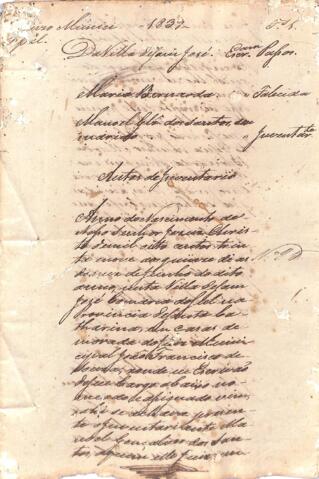 Juizo Munici 1839 Fs 1.
pal
Da Villa de São José. Escr.am Passos.
Maria Bernarda Falecida
Manoel Glz dos Santos, seu
marido Inventar.te
Autos de Inventario
Anno do Nascimento de
Nosso Senhor Jesus Chris
to de mil oito centos trinta
e nove aos quinze dias
do mez de Junho do dito
anno, nesta Villa de Sam
José Comarca do Sul na
Provincia de Santa Ca
tharina, em casas de
morada do Juiz Munici
pal João Francisco de
Souza, aonde eu Escrivão
de seu cargo abaixo no
meado e assignado vim,
e ahi se achava prezente
o Inventariante Ma
noel Gonçalves dos San
tos, a quem elle Juiz